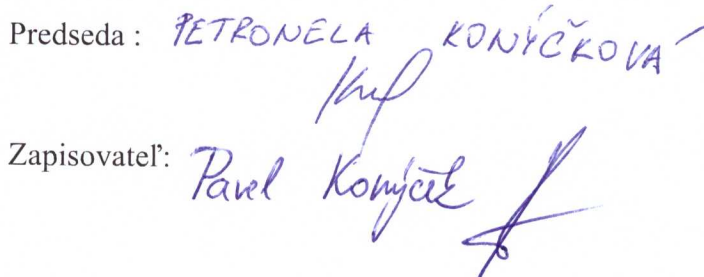 Predseda : PETRONELA KONÝČKOVÁ
Zapisovateľ: Pavel Konýček